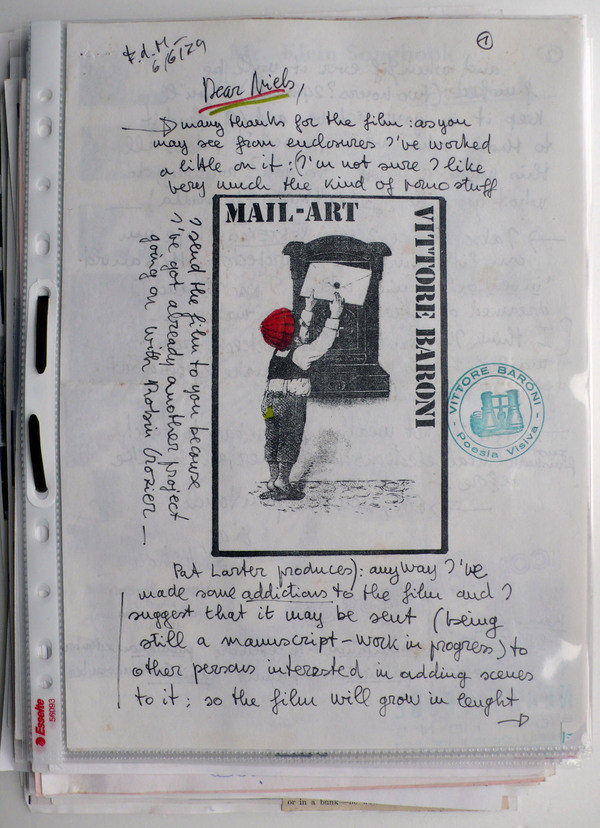 F.d.M-
6/6/79
1
Dear Niels,
many thanks for the film: as you
may see from enclosures I've worked
a little on it: (I'm not sure I like
very much the kind of porno stuff
MAIL-ART
VITTORE BARONI
I send the film to you because
I've got already another project
going on with Robin Crozier —
VITTORE BARONI
Poesia Visiva
Pat Larter produces): anyway I've
made some addictions to the film and I
suggest that it may be sent (being
still a manuscript-work in progress) to
other persons interested in adding scenes
to it; so the film will grow in lenght
Esselte
56093
or in a bunk